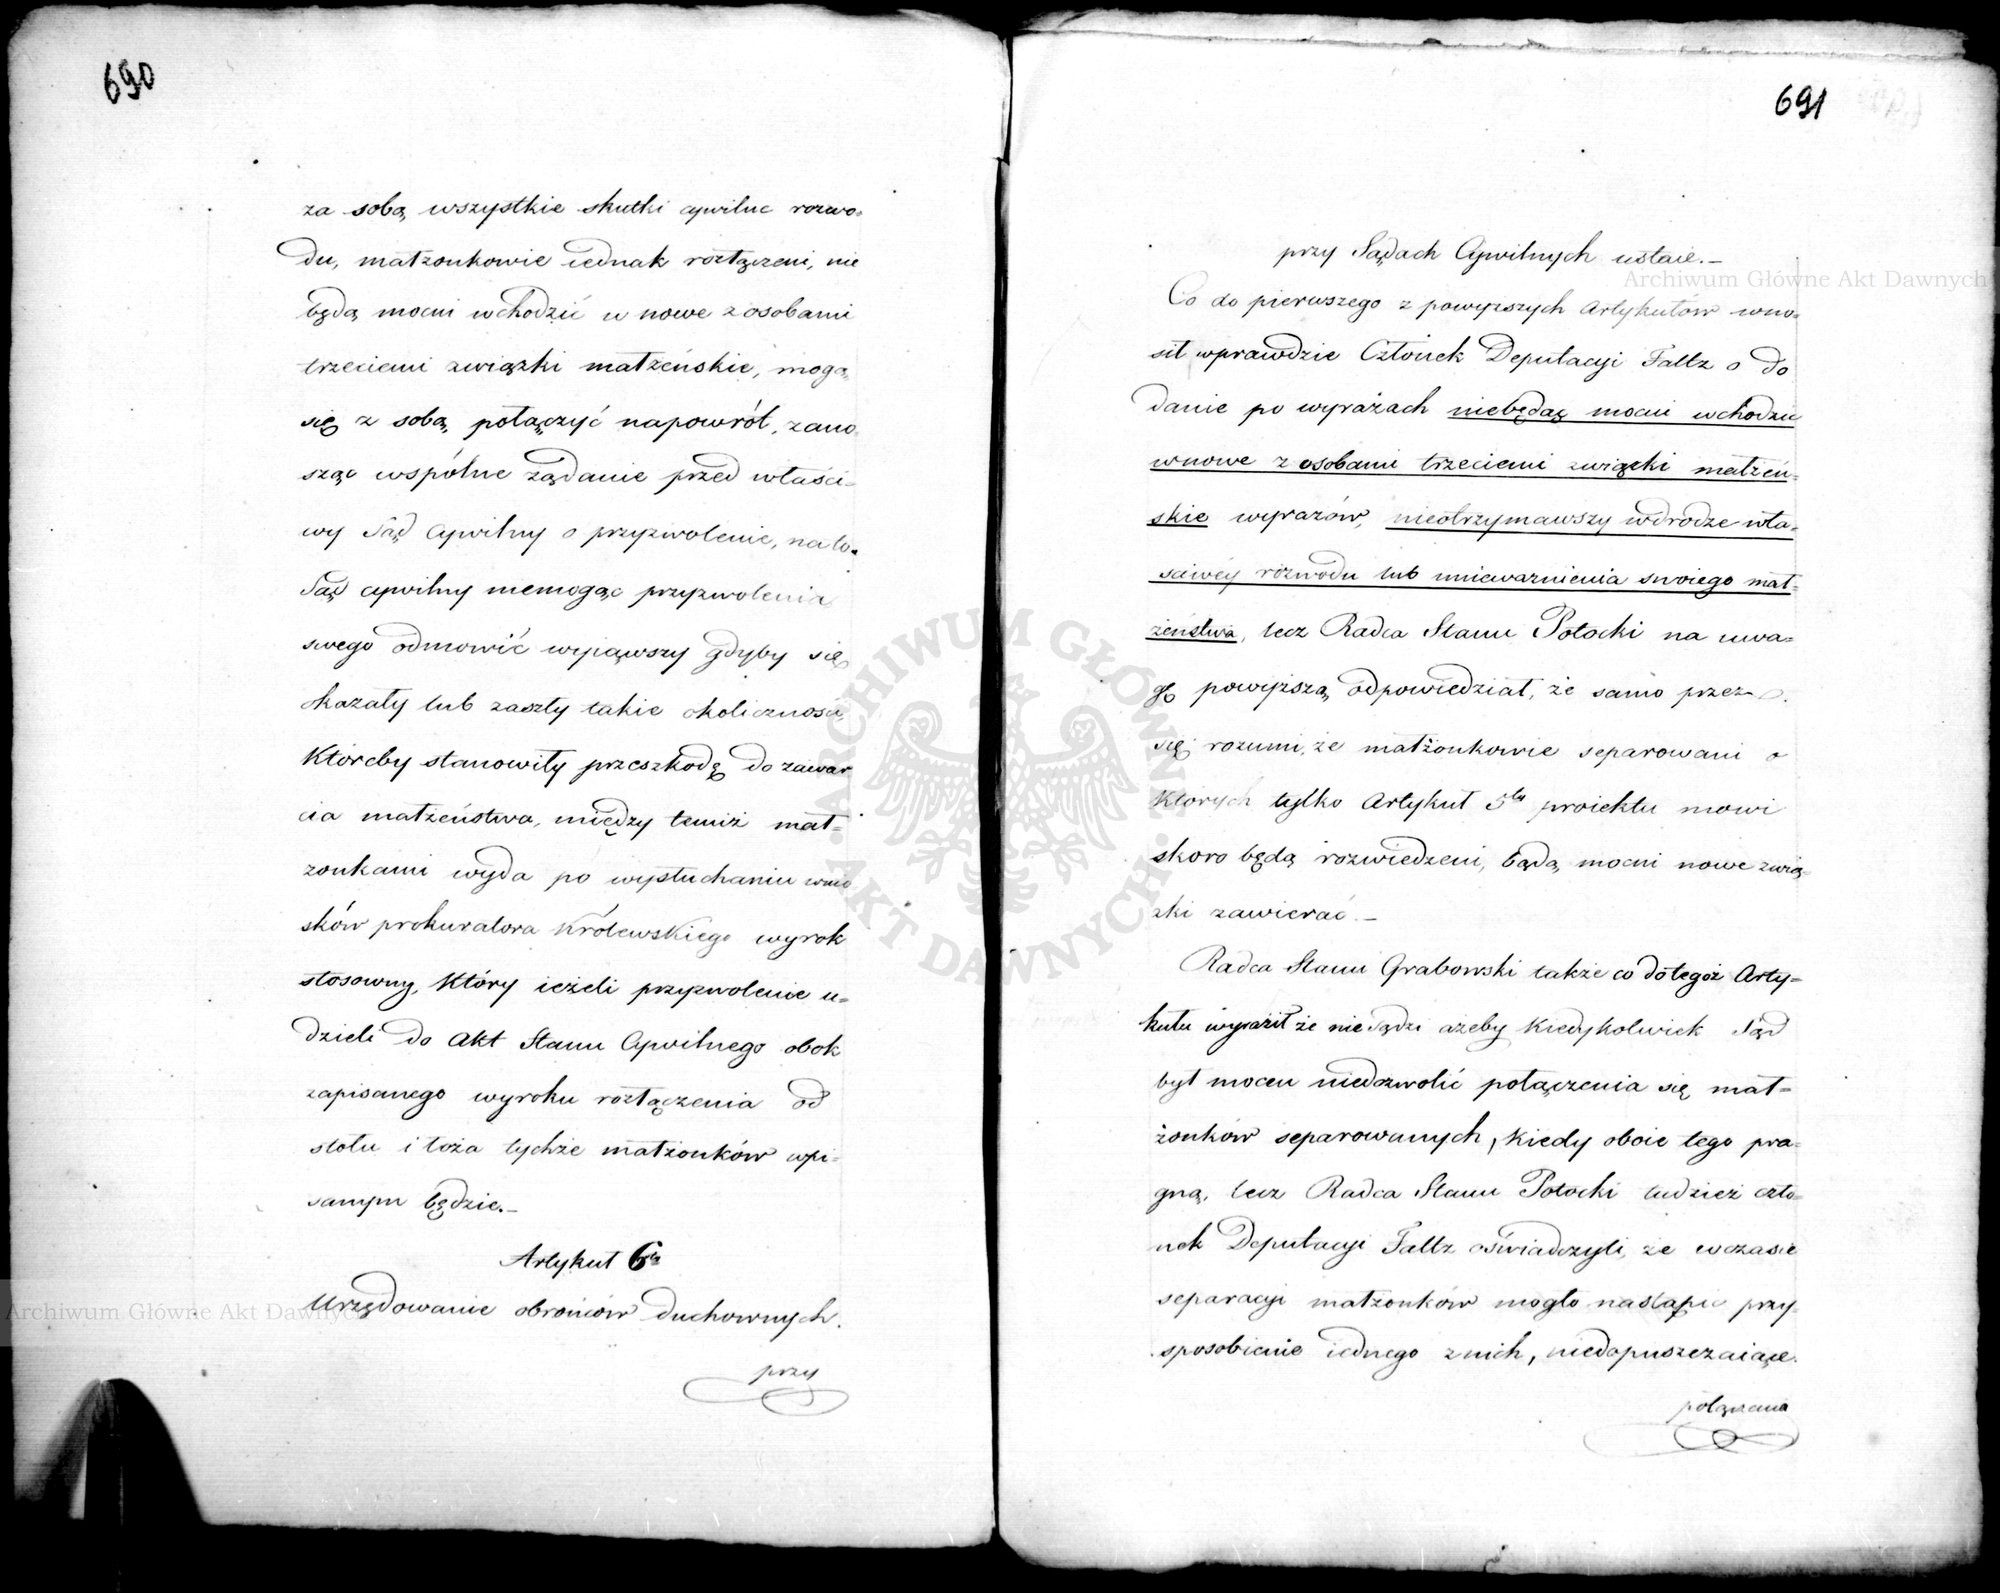 690
za sobą wszystkie skutki cywilne rozwo=
du, małżonkowie iednak rozłączeni, nie
będą mocni wchodzić w nowe z osobami
trzeciemi związki małżeńskie, mogą
się z sobą połączyć napowrót, zano=
sząc wspólne żądanie przed właści=
wy Sąd Cywilny o przyzwolenie, na to
Sąd cywilny niemogąc przyzwolenia
swego odmówić wyiąwszy gdyby się
okazały lub zaszły takie okoliczności
któreby stanowiły przeszkodę do zawar
cia małżeństwa, między temiż mał=
żonkami wyda po wysłuchaniu wnio
sków prokuratora Królewskiego wyrok
stosowny, który ieżeli przyzwolenie u=
dzieli do Akt Stanu Cywilnego obok
zapisanego wyroku rozłączenia od
stołu i łoża tychże małżonków wpi=
sanym będzie.–
Artykuł 6ty
Urzędowanie obrońców duchownych
przy
691
przy Sądach Cywilnych ustaie.–
Co do pierwszego z powyższych Artykułów wno=
sił wprawdzie Członek Deputacyi Faltz o do
danie po wyrażach niebędąc mocni wchodzić
wnowe z osobami trzeciemi związki małżeń=
skie wyrazów, nieotrzymawszy wdrodze wła=
sciwéy rozwodu lub unieważnienia swoiego mał=
żeństwa, lecz Radca Stanu Potocki na uwa=
gę powyższą odpowiedział, że samo przez
się rozumi, że małżonkowie separowani o
których tylko Artykuł 5ty proiektu mowi
skoro będą rozwiedzeni, będą mocni nowe zwią=
zki zawierać.–
Radca Stanu Grabowski także co dotegoż Arty=
kułu wyraził że nie sądzi ażeby kiedykolwiek Sąd
był mocen niedozwolić połączenia się mał=
żonków separowanych, kiedy oboie tego pra=
gną, lecz Radca Stanu Potocki tudzież czło=
nek Deputacyi Faltz oświadczyli, że wczasie
separacyi małżonków mogło nastąpić przy=
sposobienie iednego znich, niedopuszczaiące
połączenia
Archiwum Główne Akt Dawnych
Archiwum Główne Akt Dawnych
ARCHIWUM GŁÓWNE • AKT DAWNYCH •